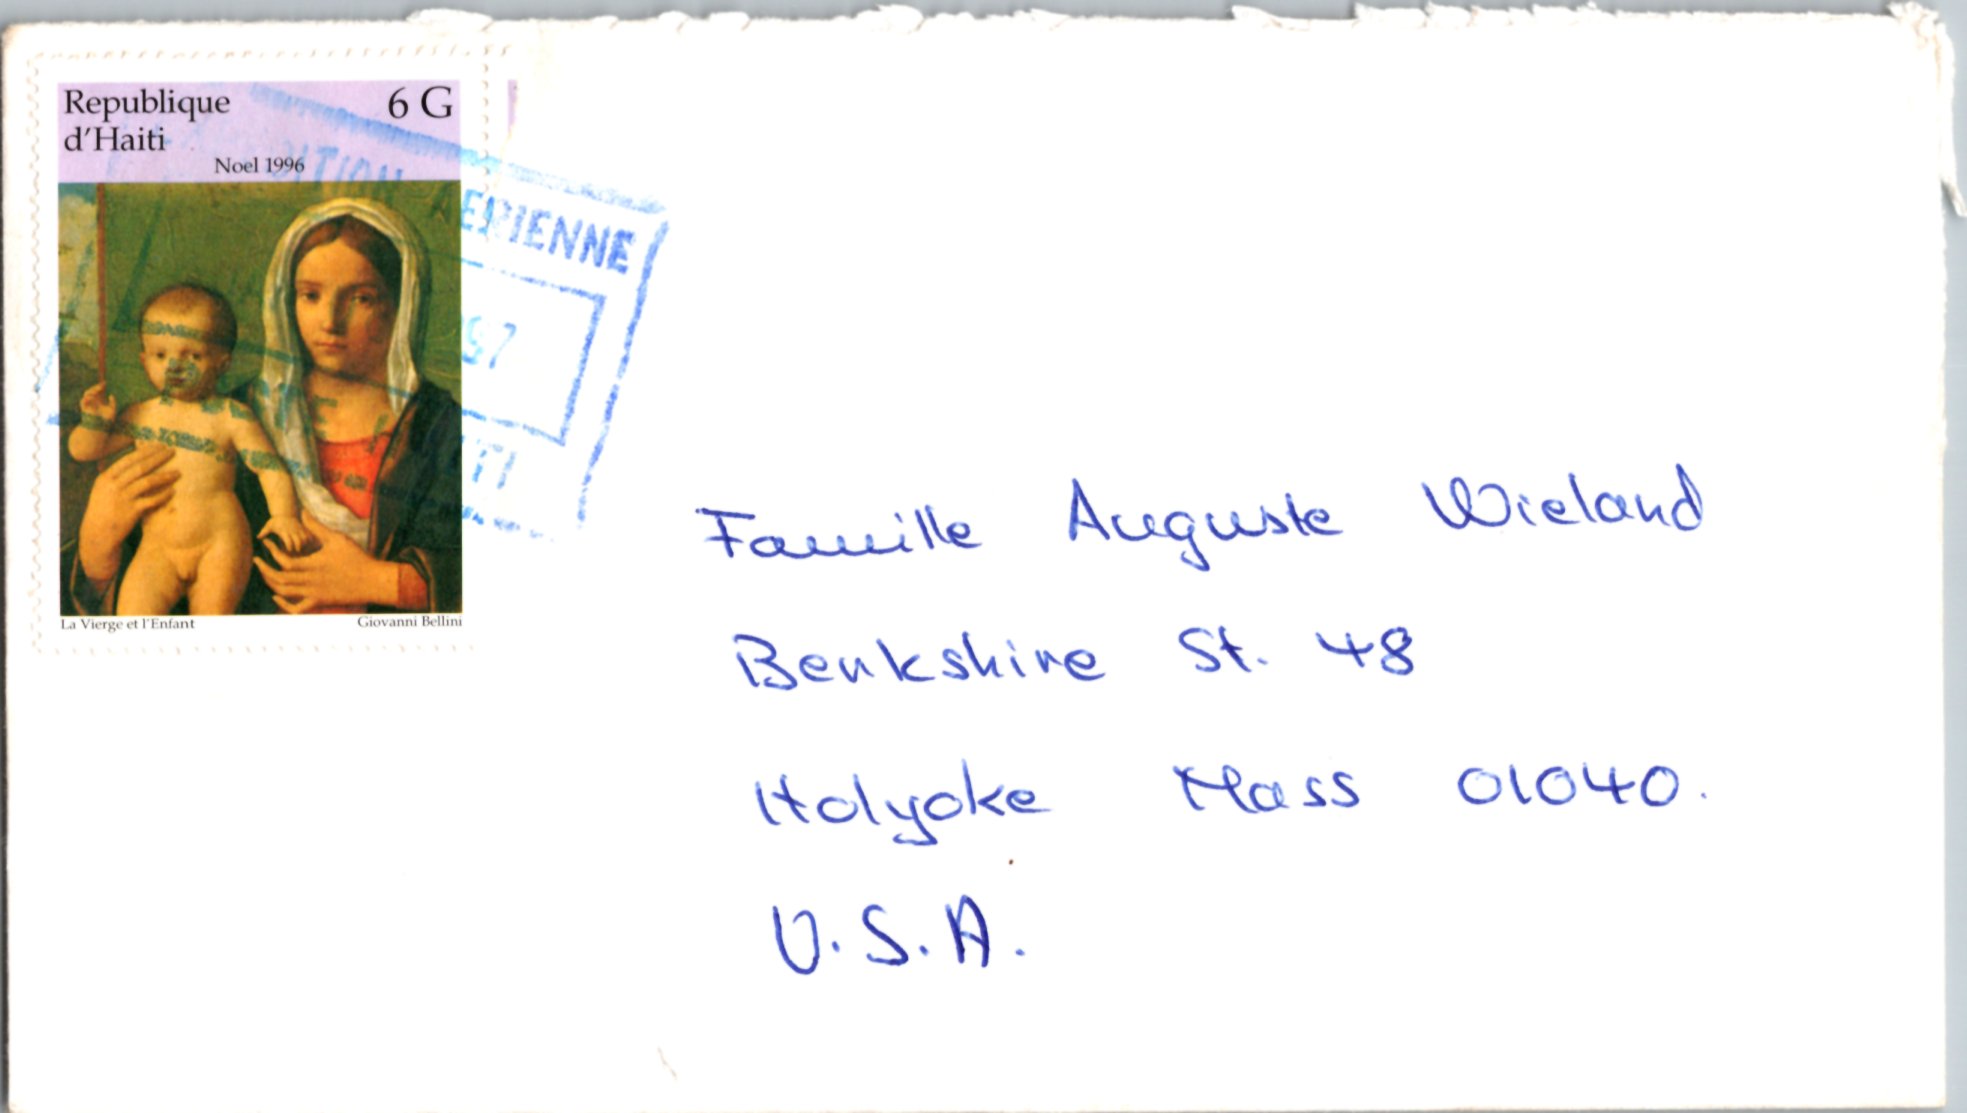 Republique 6 G
d'Haiti
Noel 1996
La Vierge et l'Enfant Giovanni Bellini
AERIENNE
97
Famille Auguste Wieland
Berkshire St. 48
Holyoke Mass 01040.
U.S.A.